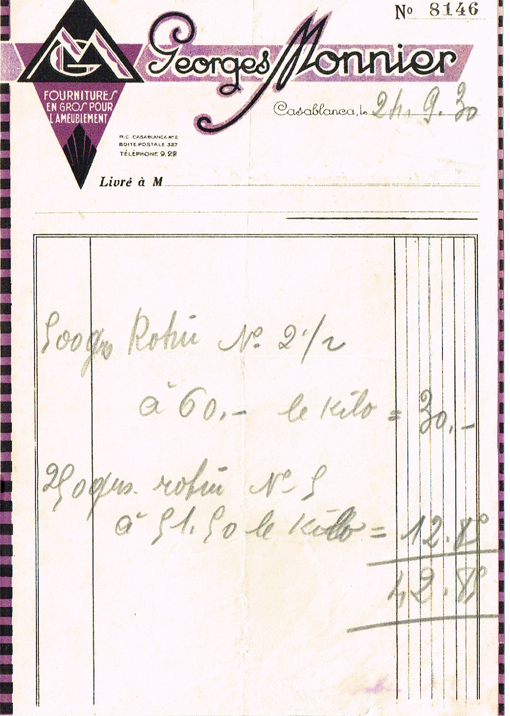 Nº 8146
GM
Georges Monnier
FOURNITURES
EN GROS POUR
L'AMEUBLEMENT
Casablanca, le 24.9.30
R.C. CASABLANCA Nº
BOITE POSTALE 327
TÉLÉPHONE 9.29
Livré à M
500grs Rotin Nº 2 1/2
à 60,- le Kilo = 30,-
250grs. rotin Nº 5
à 51.50 le Kilo = 12.85
42.85